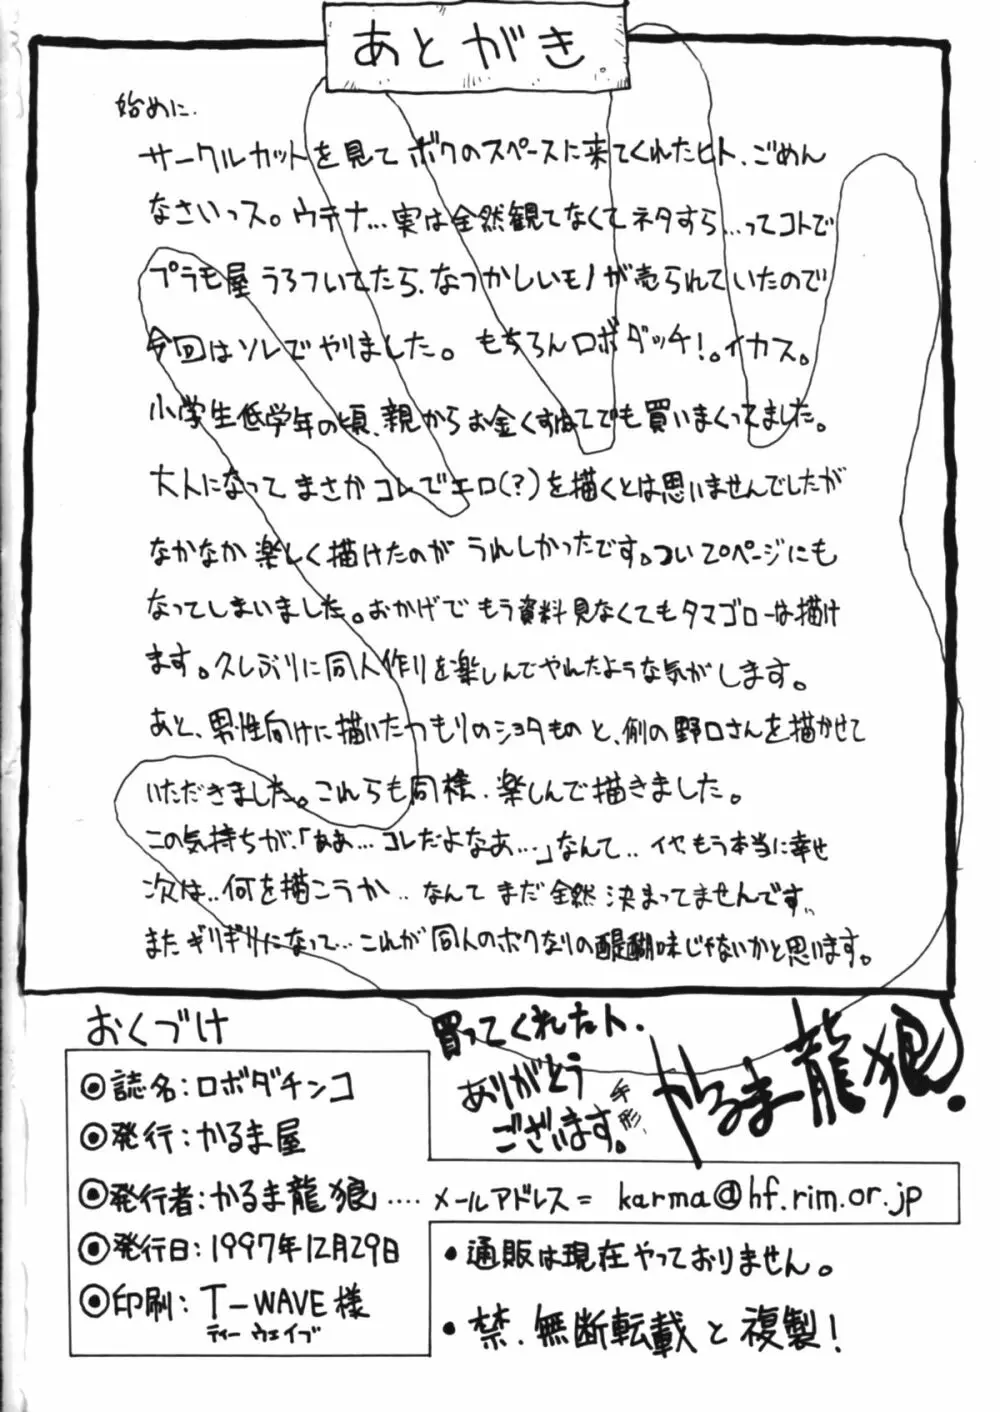 あとがき
始めに.
サークルカットを見てボクのスペースに来てくれたヒト、ごめん
なさいっス。ウテナ…実は全然観てなくてネタすら…ってコトで
プラモ屋うろついてたら、なつかしいモノが売られていたので
今回はソレでやりました。もちろんロボダッチ!。イカス。
小学生低学年の頃、親からお金くすねてでも買いまくってました。
大人になってまさかコレでエロ(?)を描くとは思いませんでしたが
なかなか楽しく描けたのがうれしかったです。ついて20ページにも
なってしまいました。おかげでもう資料見なくてもタマゴローは描け
ます。久しぶりに同人作りを楽しんでやれたような気がします。
あと、男性向けに描いたつもりのショタものと、例の野口さんを描かせて
いただきました。これらも同様、楽しんで描きました。
この気持ちが、「ああ…コレだよなあ…」なんて‥イヤもう本当に幸せ
次は‥何を描こうか‥なんてまだ全然決まってませんです‥
またギリギリになって…これが同人のボクなりの醍醐味じゃないかと思います。
買ってくれたヒト、
ありがとう
ございます。
手形、
かるま龍狼
おくづけ
◎誌名:ロボダチンコ
◎発行:かるま屋
◎発行者:かるま龍狼」‥‥メールアドレス= karma@hf.rim.or.jp
◎発行日:1997年12月29日
◎印刷:T-WAVE様
ティーウェイブ
・通販は現在やっておりません。
・禁、無断転載と複製!